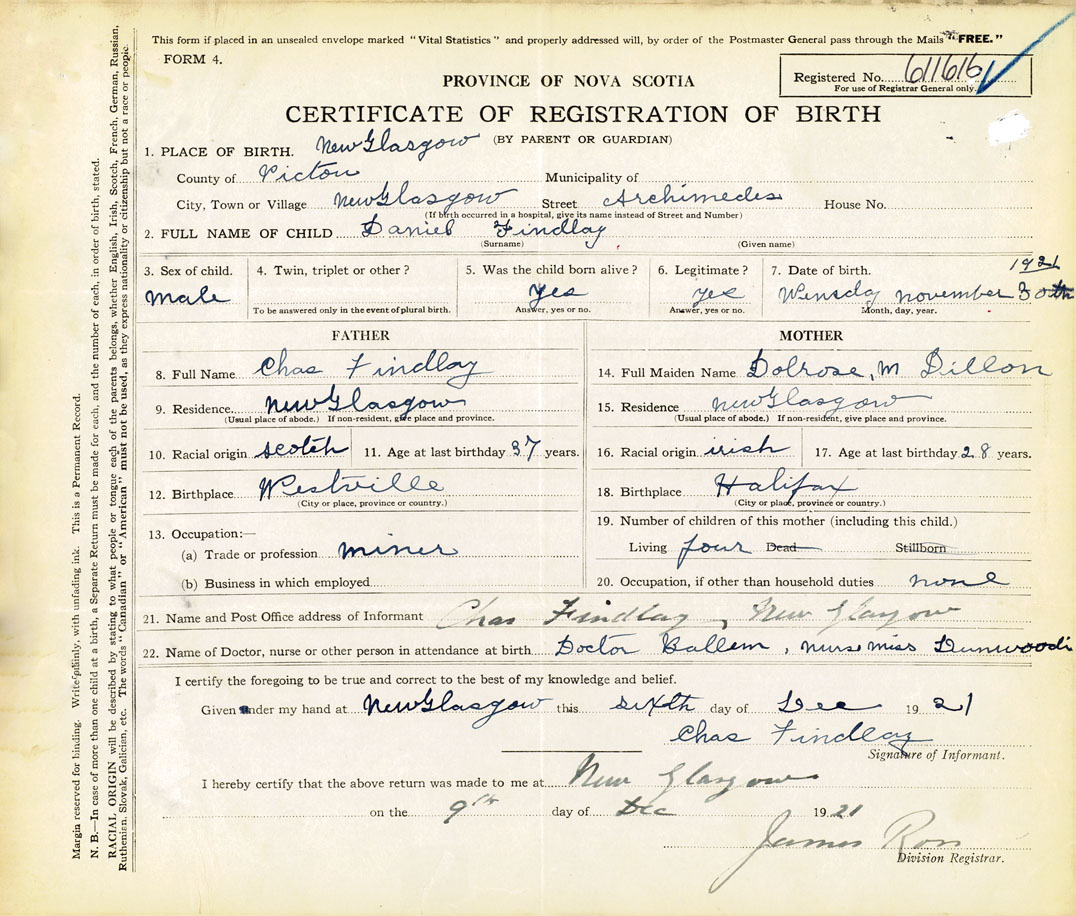 This form if placed in an unsealed envelope marked "Vital Statistics" and properly addressed will, by order of the Postmaster General pass through the Mails "FREE."
FORM 4.
Registered No. 611616
For use of Registrar General only.
PROVINCE OF NOVA SCOTIA
CERTIFICATE OF REGISTRATION OF BIRTH
(BY PARENT OR GUARDIAN)
1. PLACE OF BIRTH. New Glasgow
County of Picton Municipality of
City, Town or Village New Glasgow Street Archimedes House No.
(If birth occurred in a hospital, give its name instead of Street and Number)
2. FULL NAME OF CHILD Daniel Findlay
(Surname) (Given name)
3. Sex of child. 4. Twin, triplet or other? 5. Was the child born alive? 6. Legitimate? 7. Date of birth. 1921
male yes yes Wensday november 30th
To be answered only in the event of plural birth. Answer, yes or no. Answer, yes or no. Month, day, year.
FATHER
8. Full Name Chas Findlay
9. Residence. New Glasgow
(Usual place of abode.) If non-resident, give place and province.
10. Racial origin scotch 11. Age at last birthday 37 years.
12. Birthplace Westville
(City or place, province or country.)
13. Occupation:—
(a) Trade or profession miner
(b) Business in which employed
MOTHER
14. Full Maiden Name Dolrose, M Dillon
15. Residence new Glasgow
(Usual place of abode.) If non-resident, give place and province.
16. Racial origin irish 17. Age at last birthday 28 years.
18. Birthplace Halifax
(City or place, province or country.)
19. Number of children of this mother (including this child.)
Living four Dead Stillborn
20. Occupation, if other than household duties none
21. Name and Post Office address of Informant Chas Findlay, New Glasgow
22. Name of Doctor, nurse or other person in attendance at birth Doctor Ballem, nurse miss Dunwoodi
I certify the foregoing to be true and correct to the best of my knowledge and belief.
Given under my hand at New Glasgow this sixth day of Dec 1921
Chas Findlay
Signature of Informant.
I hereby certify that the above return was made to me at New Glasgow
on the 9th day of Dec 1921
James
Division Registrar.
Margin reserved for binding. Write plainly, with unfading ink. This is a Permanent Record.
N. B.—In case of more than one child at a birth, a Separate Return must be made for each, and the number of each, in order of birth, stated.
RACIAL ORIGIN will be described by stating to what people or tongue each of the parents belongs, whether English, Irish, Scotch, French, German, Russian,
Ruthenian, Slovak, Galician, etc. The words "Canadian" or "American" must not be used, as they express nationality or citizenship but not a race or people.